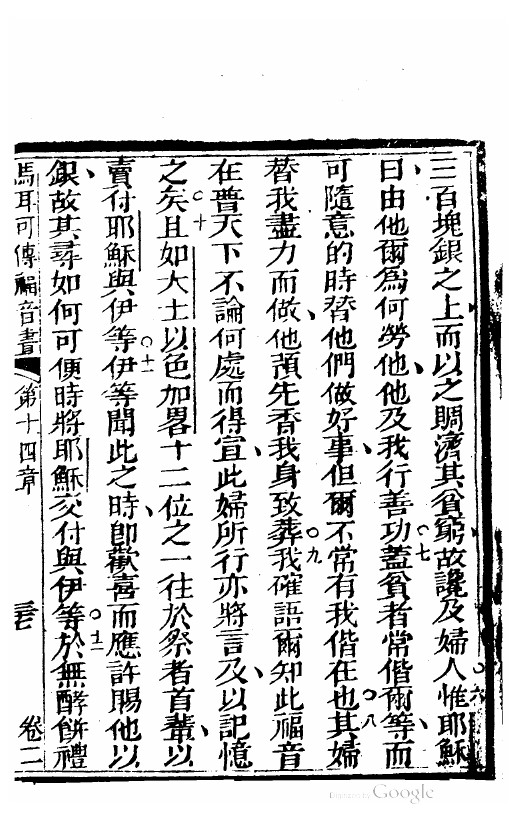 三百塊銀之上而以之賙濟其貧窮故讒及婦人○六惟耶穌
曰由他爾爲何勞他、他及我行善功○七蓋貧者常偕爾等、而
可隨意的時替他們做好事、但爾不常有我偕在也○八其婦
替我盡力而做、他預先香我身致葬○九我確語爾知此福音
在普天下不論何處而得宣、此婦所行亦將言及、以記憶
之矣○十且如大士以色加畧十二位之一往於祭者首輩、以
賣付耶穌與伊等○十一伊等聞此之時、卽歡喜而應許賜他以
銀、故其尋如何可便時將耶穌交付與伊等○十二於無酵餅禮
馬耳可傳福音書 第十四章 卷二
Digitized by Google